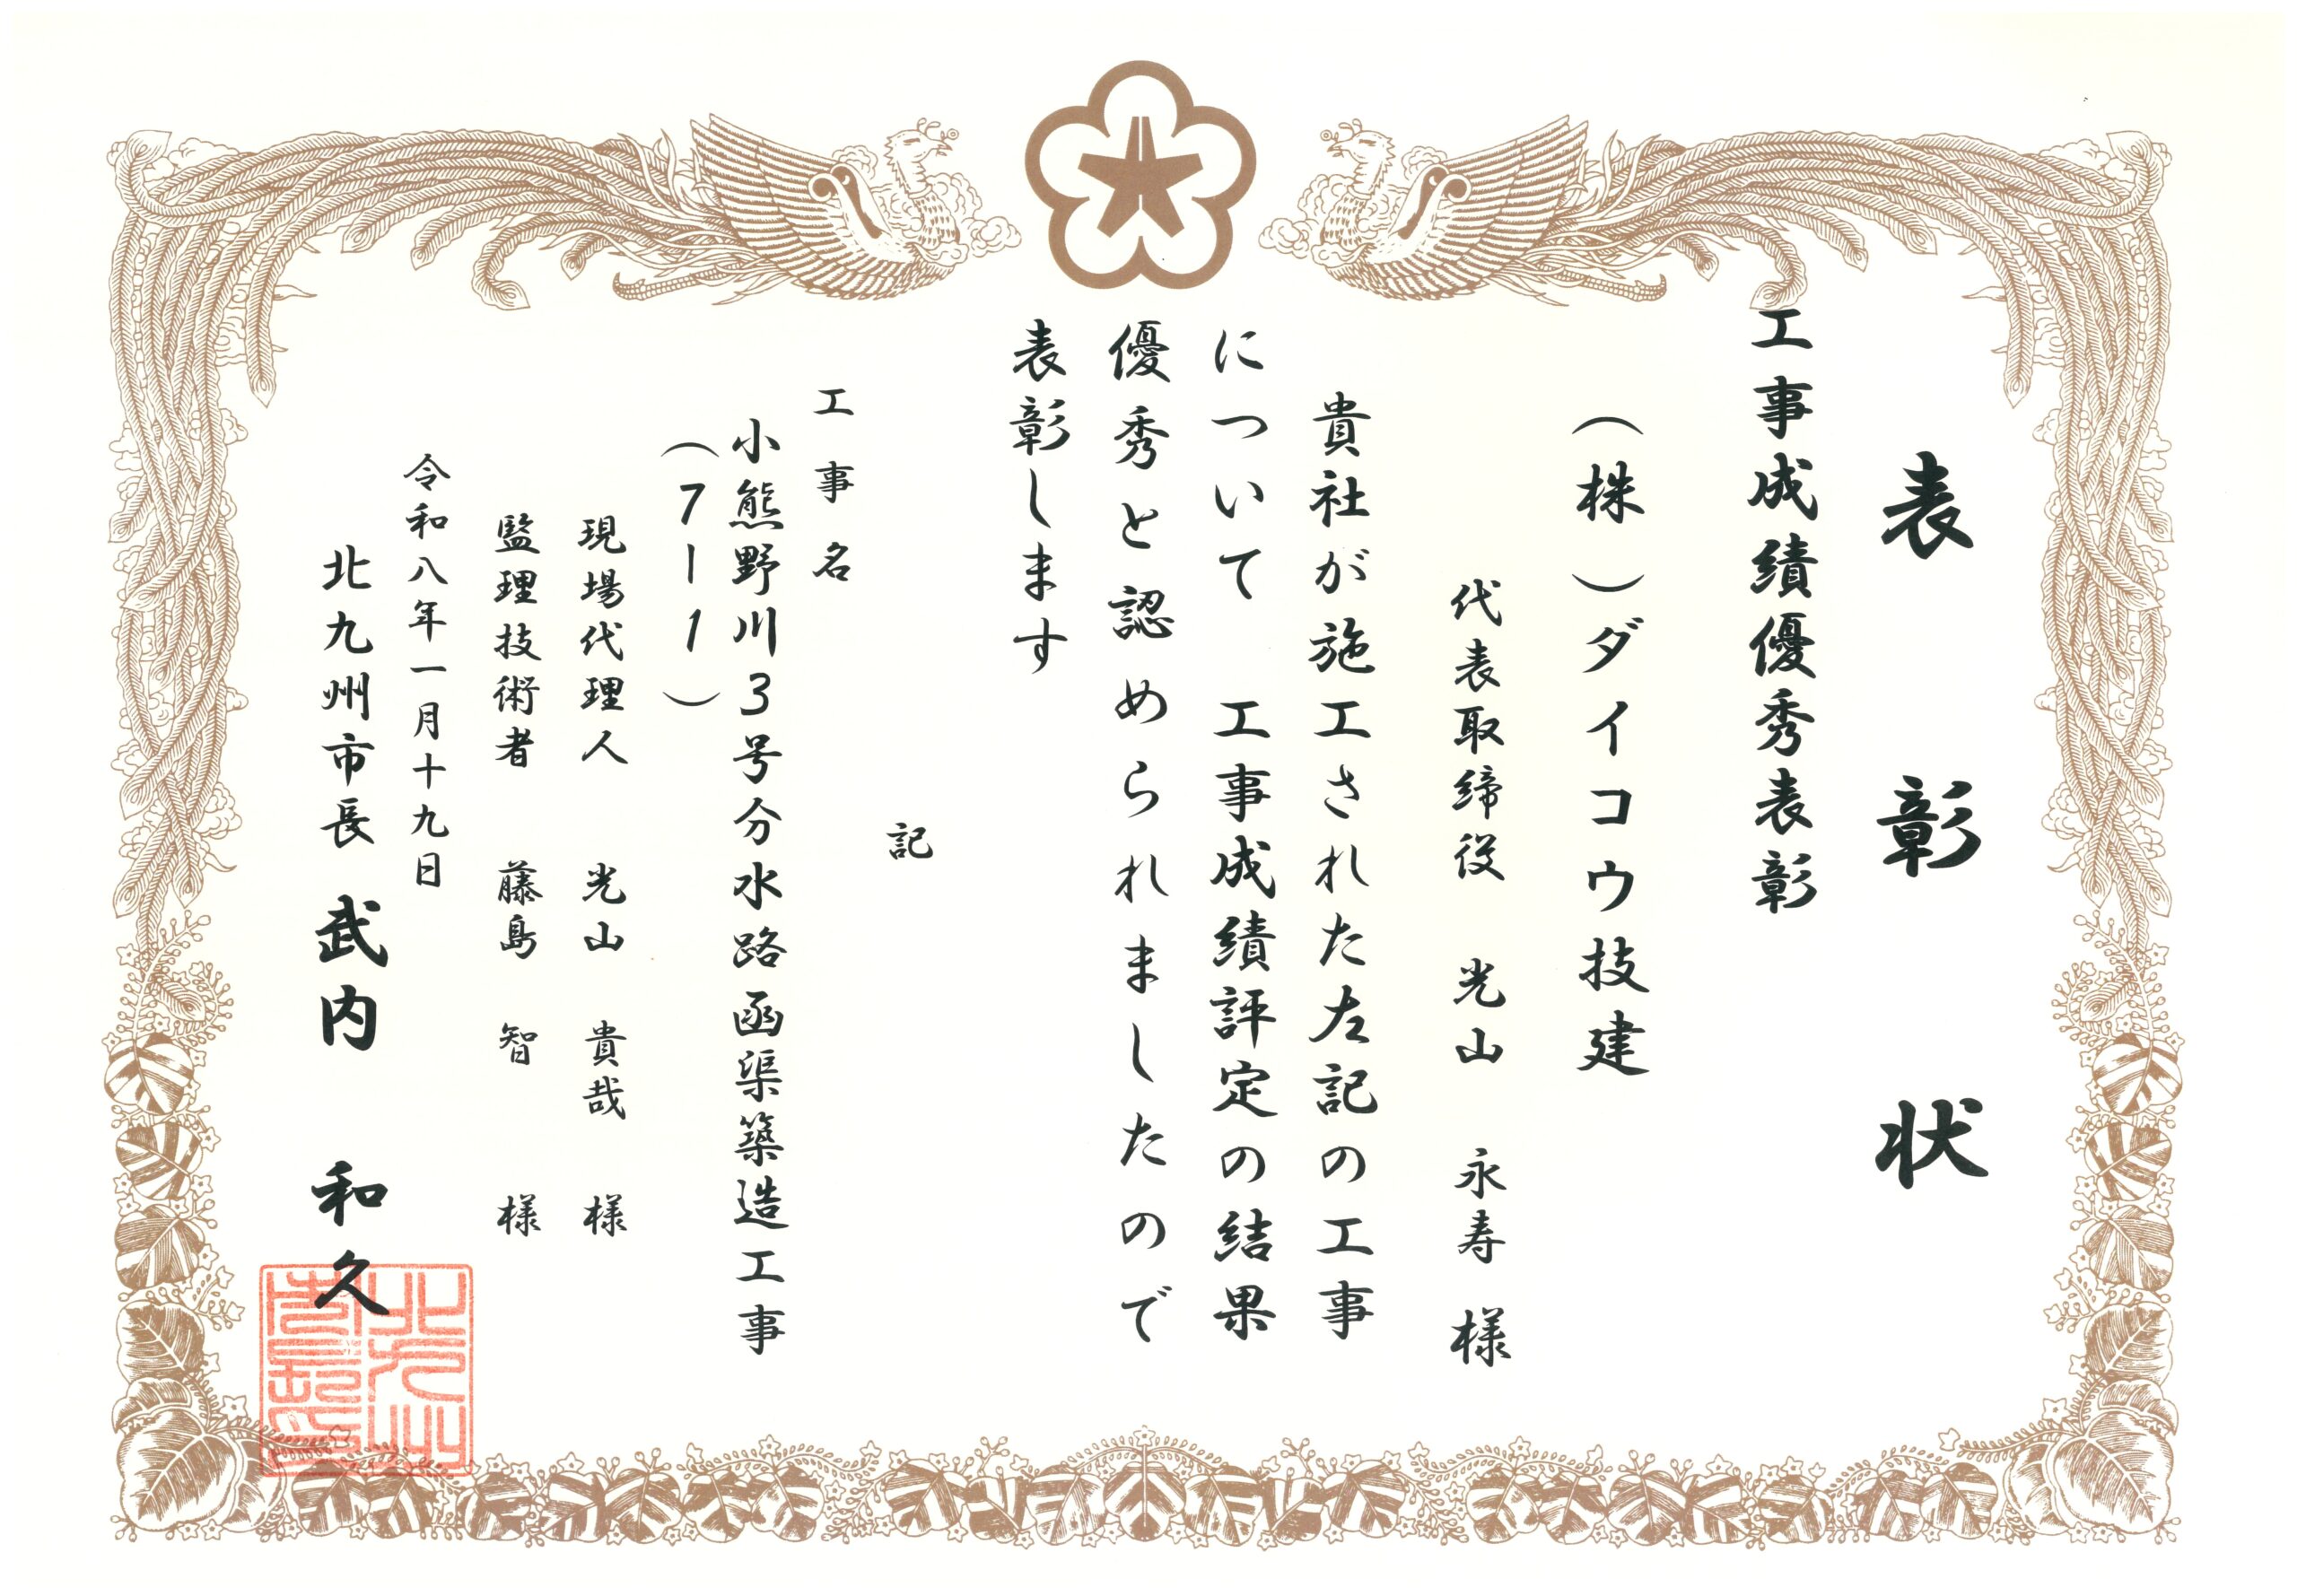 表彰状
工事成績優秀表彰
（株）ダイコウ技建
代表取締役 光山 永寿 様
貴社が施工された左記の工事
について 工事成績評定の結果
優秀と認められましたので
表彰します
記
工事名
小熊野川3号分水路函渠築造工事
（7ー1）
現場代理人 光山 貴哉 様
監理技術者 藤島 智 様
令和八年一月十九日
北九州市長 武内 和久
北九州市長記印